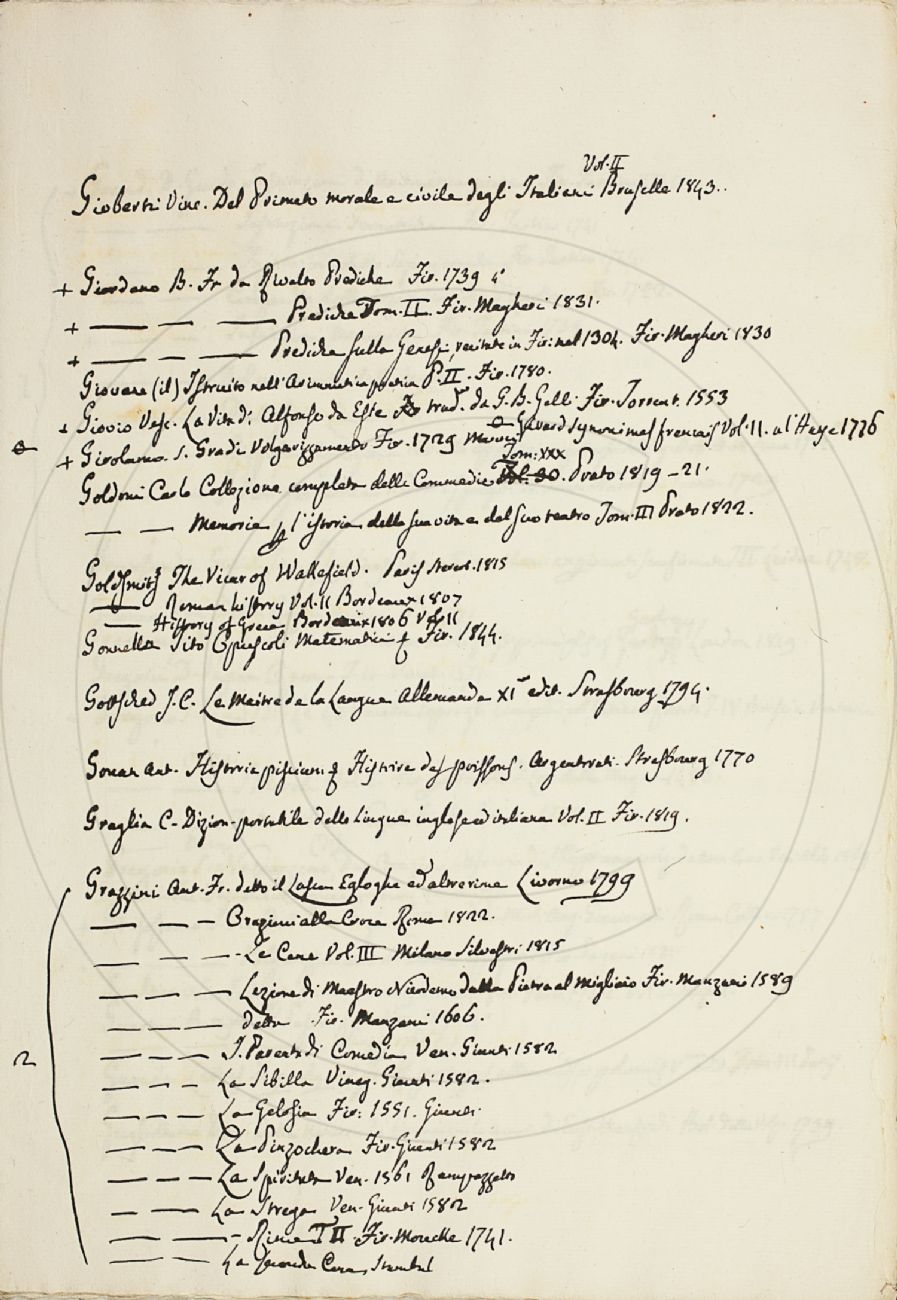 Vol. II
Gioberti Vinc. Del Primato morale e civile degli Italiani Bruselle 1843..
+ Giordano B. Fr. da Rivalto Prediche Fir. 1739 4°
+ —— —— —— Prediche Tom. II. Fir. Magheri 1831.
+ —— —— —— Prediche sulla Genesi, recitate in Fir: nel 1304. Fir. Magheri 1830
Giovane (il) Istruito nell'Aritmetica pratica P. II. Fir. 1780.
+ Giovio Vesc. La Vita di Alfonso da Este trad. da G. B. Gelli Fir. Torrent. 1553
Girard Synonimes francais Vol. II. a l'Haye 1776
+ Girolamo S. Gradi Volgarizzamento Fir. 1729 Manni
Tom: XXX
Goldoni Carlo Collezione completa delle Commedie Vol. 30. Prato 1819–21.
—— —— Memorie p l'istoria della sua vita e del suo teatro Tom. III Prato 1822.
Goldsmitz The Vicar of Wakefield. Paris Stereot. 1815
—— Roman history Vol. II Bordeaux 1807
—— History of Grece Bordeaux 1806 Vol II
Gonnella Tito Opuscoli Matematici Fir. 1844.
Gottsched J. C. Le Maitre de la Langue Allemande XI edit. Strasbourg 1794.
Gouan Ant. Historia piscium Histoire des poissons. Argentorati. Strasbourg 1770
Graglia C. Dizion. portatile delle lingue inglese ed italiana Vol. II Fir. 1819.
Grazzini Ant. Fr. detto il Lasca Egloghe ed altre rime Livorno 1799
—— —— — Orazioni alla Croce Roma 1822.
—— —— —— Le Cene Vol. III Milano Silvestri 1815
—— —— —— Lezione di Maestro Nicodemo dalla Pietra al Migliaio Fir. Manzani 1589
—— —— —— detta Fir. Manzani 1606.
2 —— —— —— I Parentadi Comedia Ven. Giunti 1582
—— —— —— La Sibilla Vineg. Giunti 1582.
—— —— —— La Gelosia Fir: 1551. Giunti.
—— —— —— La Pinzochera Fir. Giunti 1582
—— —— —— La Spiritata Ven. 1561 Rampazzetto
—— —— La Strega Ven. Giunti 1582
—— —— Rime T II Fir. Moucke 1741.
—— —— La Seconda Cena, Stambul